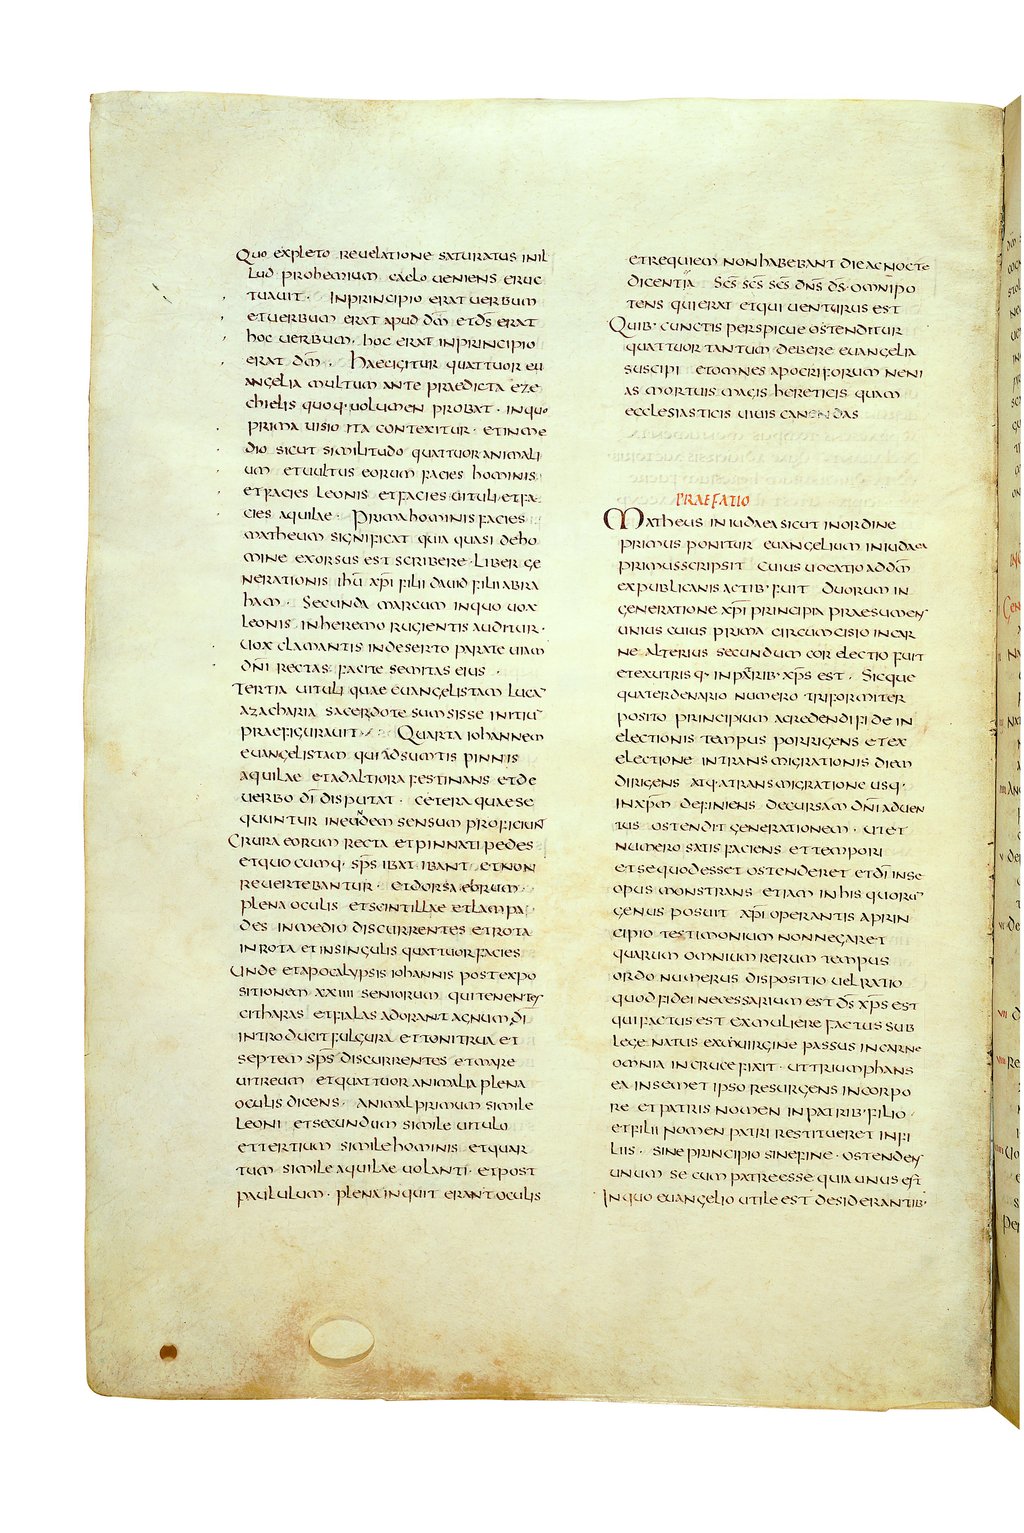 Quo expleto reuelatione saturatus inil
lud prohemium caelo ueniens eruc
tuauit · Inprincipio erat uerbum
etuerbum erat apud dm̄ et ds̄ erat
hoc uerbum · hoc erat inprincipio
erat dm̄ · Haecigitur quattuor eu
angelia multum ante praedicta eze
chielis quoq· uolumen probat · inquo
prima uisio ita contexitur · etinme
dio sicut similitudo quattuor animali
um etuultus eorum facies hominis
etfacies leonis etfacies uituli etfa
cies aquilae · Prima hominis facies
matheum significat quia quasi deho
mine exorsus est scribere · Liber ge
nerationis ihū xp̄i filii dauid filii abra
ham · Secunda marcum inquo uox
leonis inheremo rugientis auditur ·
Uox clamantis indeserto parate uiam
dn̄i rectas facite semitas eius ·
Tertia uituli quae euangelistam lucā
azacharia sacerdote sumsisse initiū
praefigurauit · Quarta iohannem
euangelistam qui adsumtis pinnis
aquilae etadaltiora festinans etde
uerbo dī disputat · cetera quaese
quuntur ineundem sensum proficiunt
Crura eorum recta etpinnati pedes
etquocumq· sp̄s ibat ibant etnon
reuertebantur · etdorsa eorum ·
plena oculis etscintillae etlampa
des inmedio discurrentes etrota
inrota etinsingulis quattuor facies
Unde etapocalypsis iohannis postexpo
sitionem xxiiii seniorum quitenentes
citharas etfialas adorant agnum dī
introducit fulgura ettonitrua et
septem sp̄s discurrentes etmare
uitreum etquattuor animalia plena
oculis dicens · animal primum simile
leoni etsecundum simile uitulo
ettertium simile hominis etquar
tum simile aquilae uolanti · etpost
paululum · plena inquit erant oculis
etrequiem nonhabebant dieacnocte
dicentia sc̄s sc̄s sc̄s dn̄s ds̄ omnipo
tens quierat etqui uenturus est
Quib· cunctis perspicue ostenditur
quattuor tantum debere euangelia
suscipi etomnes apocriforum neni
as mortuis magis hereticis quam
ecclesiasticis uiuis canendas
PRAEFATIO
Matheus iniudaea sicut inordine
primus ponitur euangelium iniudaea
primus scripsit cuius uocatio addm̄
expublicanis actib· fuit duorum in
generatione xp̄i principia praesumens
unius cuius prima circumcisio incar
ne alterius secundum cor electio fuit
etexutrisq· inpatrib· xp̄s est · Sicque
quaterdenario numero triformiter
posito principium acredendi fide in
electionis tempus porrigens etex
electione intransmigrationis diem
dirigens atq· atransmigratione usq·
inxp̄m definiens decursam dn̄i aduen
tus ostendit generationem · utet
numero satisfaciens ettempori
etsequodesset ostenderet etdī inse
opus monstrans etiam inhis quorū
genus posuit xp̄i operantis aprin
cipio testimonium nonnegaret
quarum omnium rerum tempus
ordo numerus dispositio uel ratio
quod fidei necessarium est ds̄ xp̄s est
quifactus est exmuliere factus sub
lege natus exuirgine passus incarne
omnia incruce fixit · uttriumphans
ea insemet ipso resurgens incorpo
re etpatris nomen inpatrib· filio ·
etfilii nomen patri restitueret infi
liis · sineprincipio sinefine · ostendens
unum se cum patreesse quia unus est
Inquo euangelio utile est desiderantib·